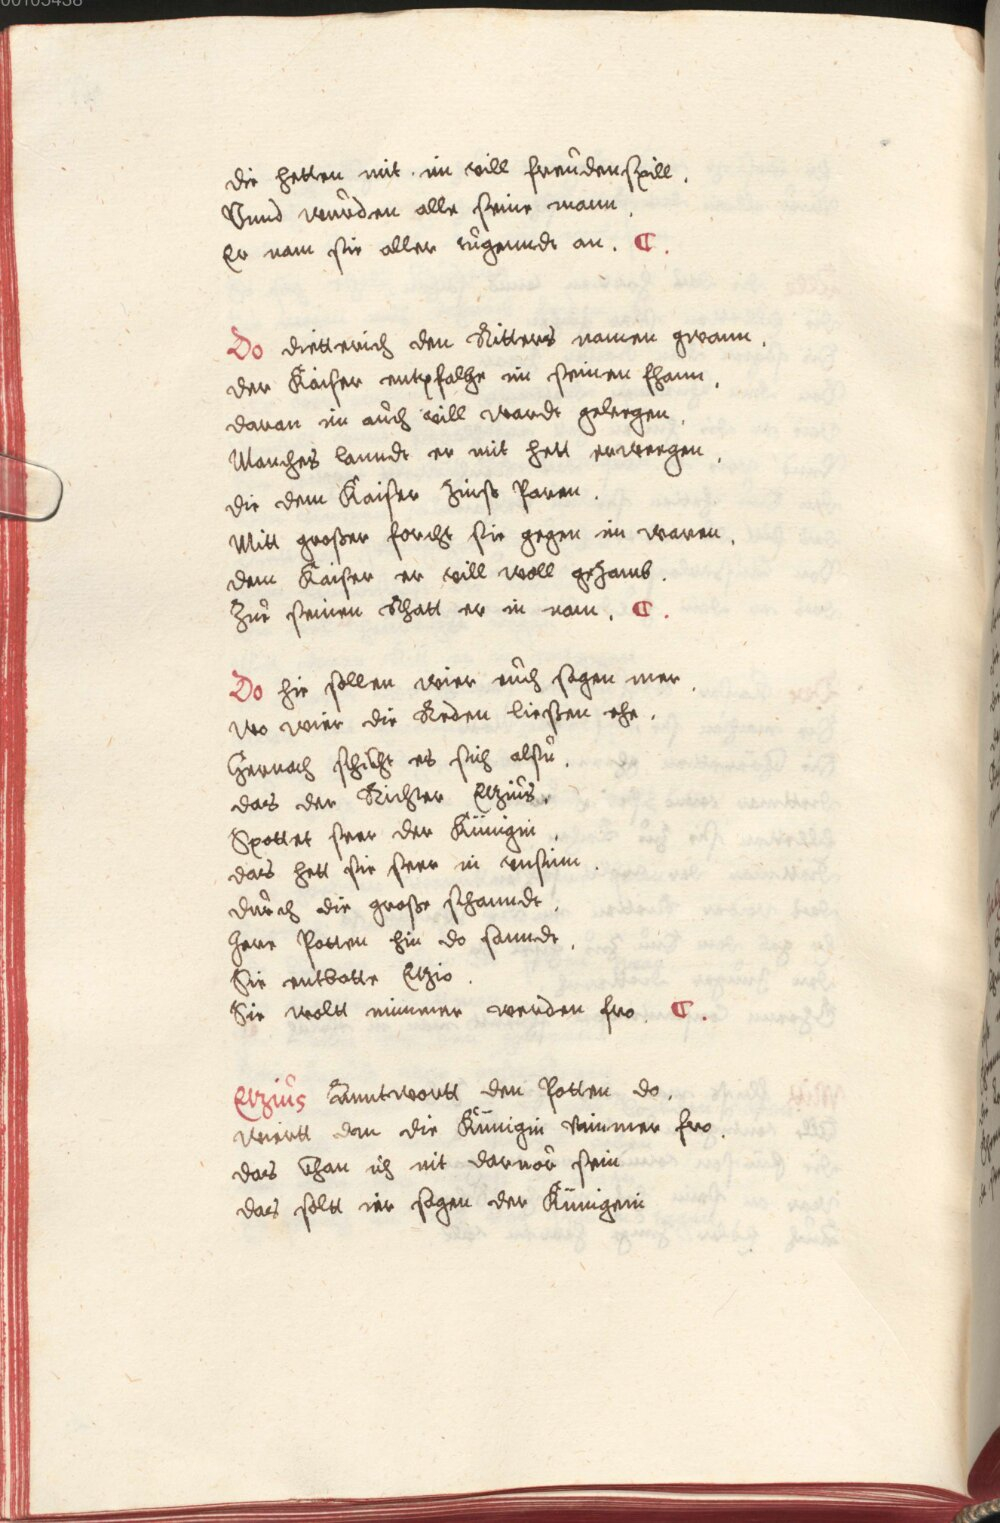 00103438
die hetten mit im vill freudenspill.
Vnnd wurden alle seine mann.
Er nam sie aller tugenndt an. C.
Do dietterich den Ritters namen gwann.
der Kaiser entpfalhe im seinen fhann.
daran im auch vill wardt gelegen.
Manches lanndt er mit hett erwergen.
die dem Kaiser Zinss Paren.
Mitt großer forcht sie gegen im waren.
dem Kaiser er vill woll gezamb.
Zue seinen Rhatt er in nam. C.
Do hie sollen wier euch sagen mer.
wo wier die Reden ließen ehe.
Hernach schickt es sich alsu.
das der Richter Etzius.
Spottet seer der Künigin.
das hett sie seer in vnsinn.
durch die große schanndt.
Herr Potten hin do sanndt.
Sie entbotte Etzio.
Sie woltt nimmer werden fro. C.
Etzius Anntwortt den Potten do.
wiertt dan die Künigin nimmer fro.
das Khan ich nit daruor sein
das soltt ier sagen der Künigein